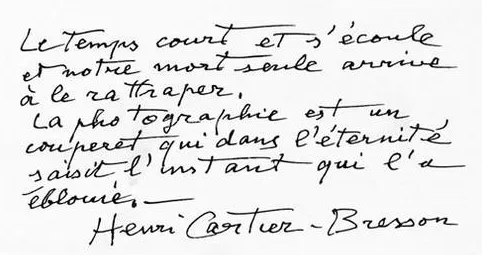 Le temps court et s'écoule
et notre mort seule arrive
à le rattraper.
La photographie est un
couperet qui dans l'éternité
saisit l'instant qui l'a
éblouie.
Henri Cartier-Bresson